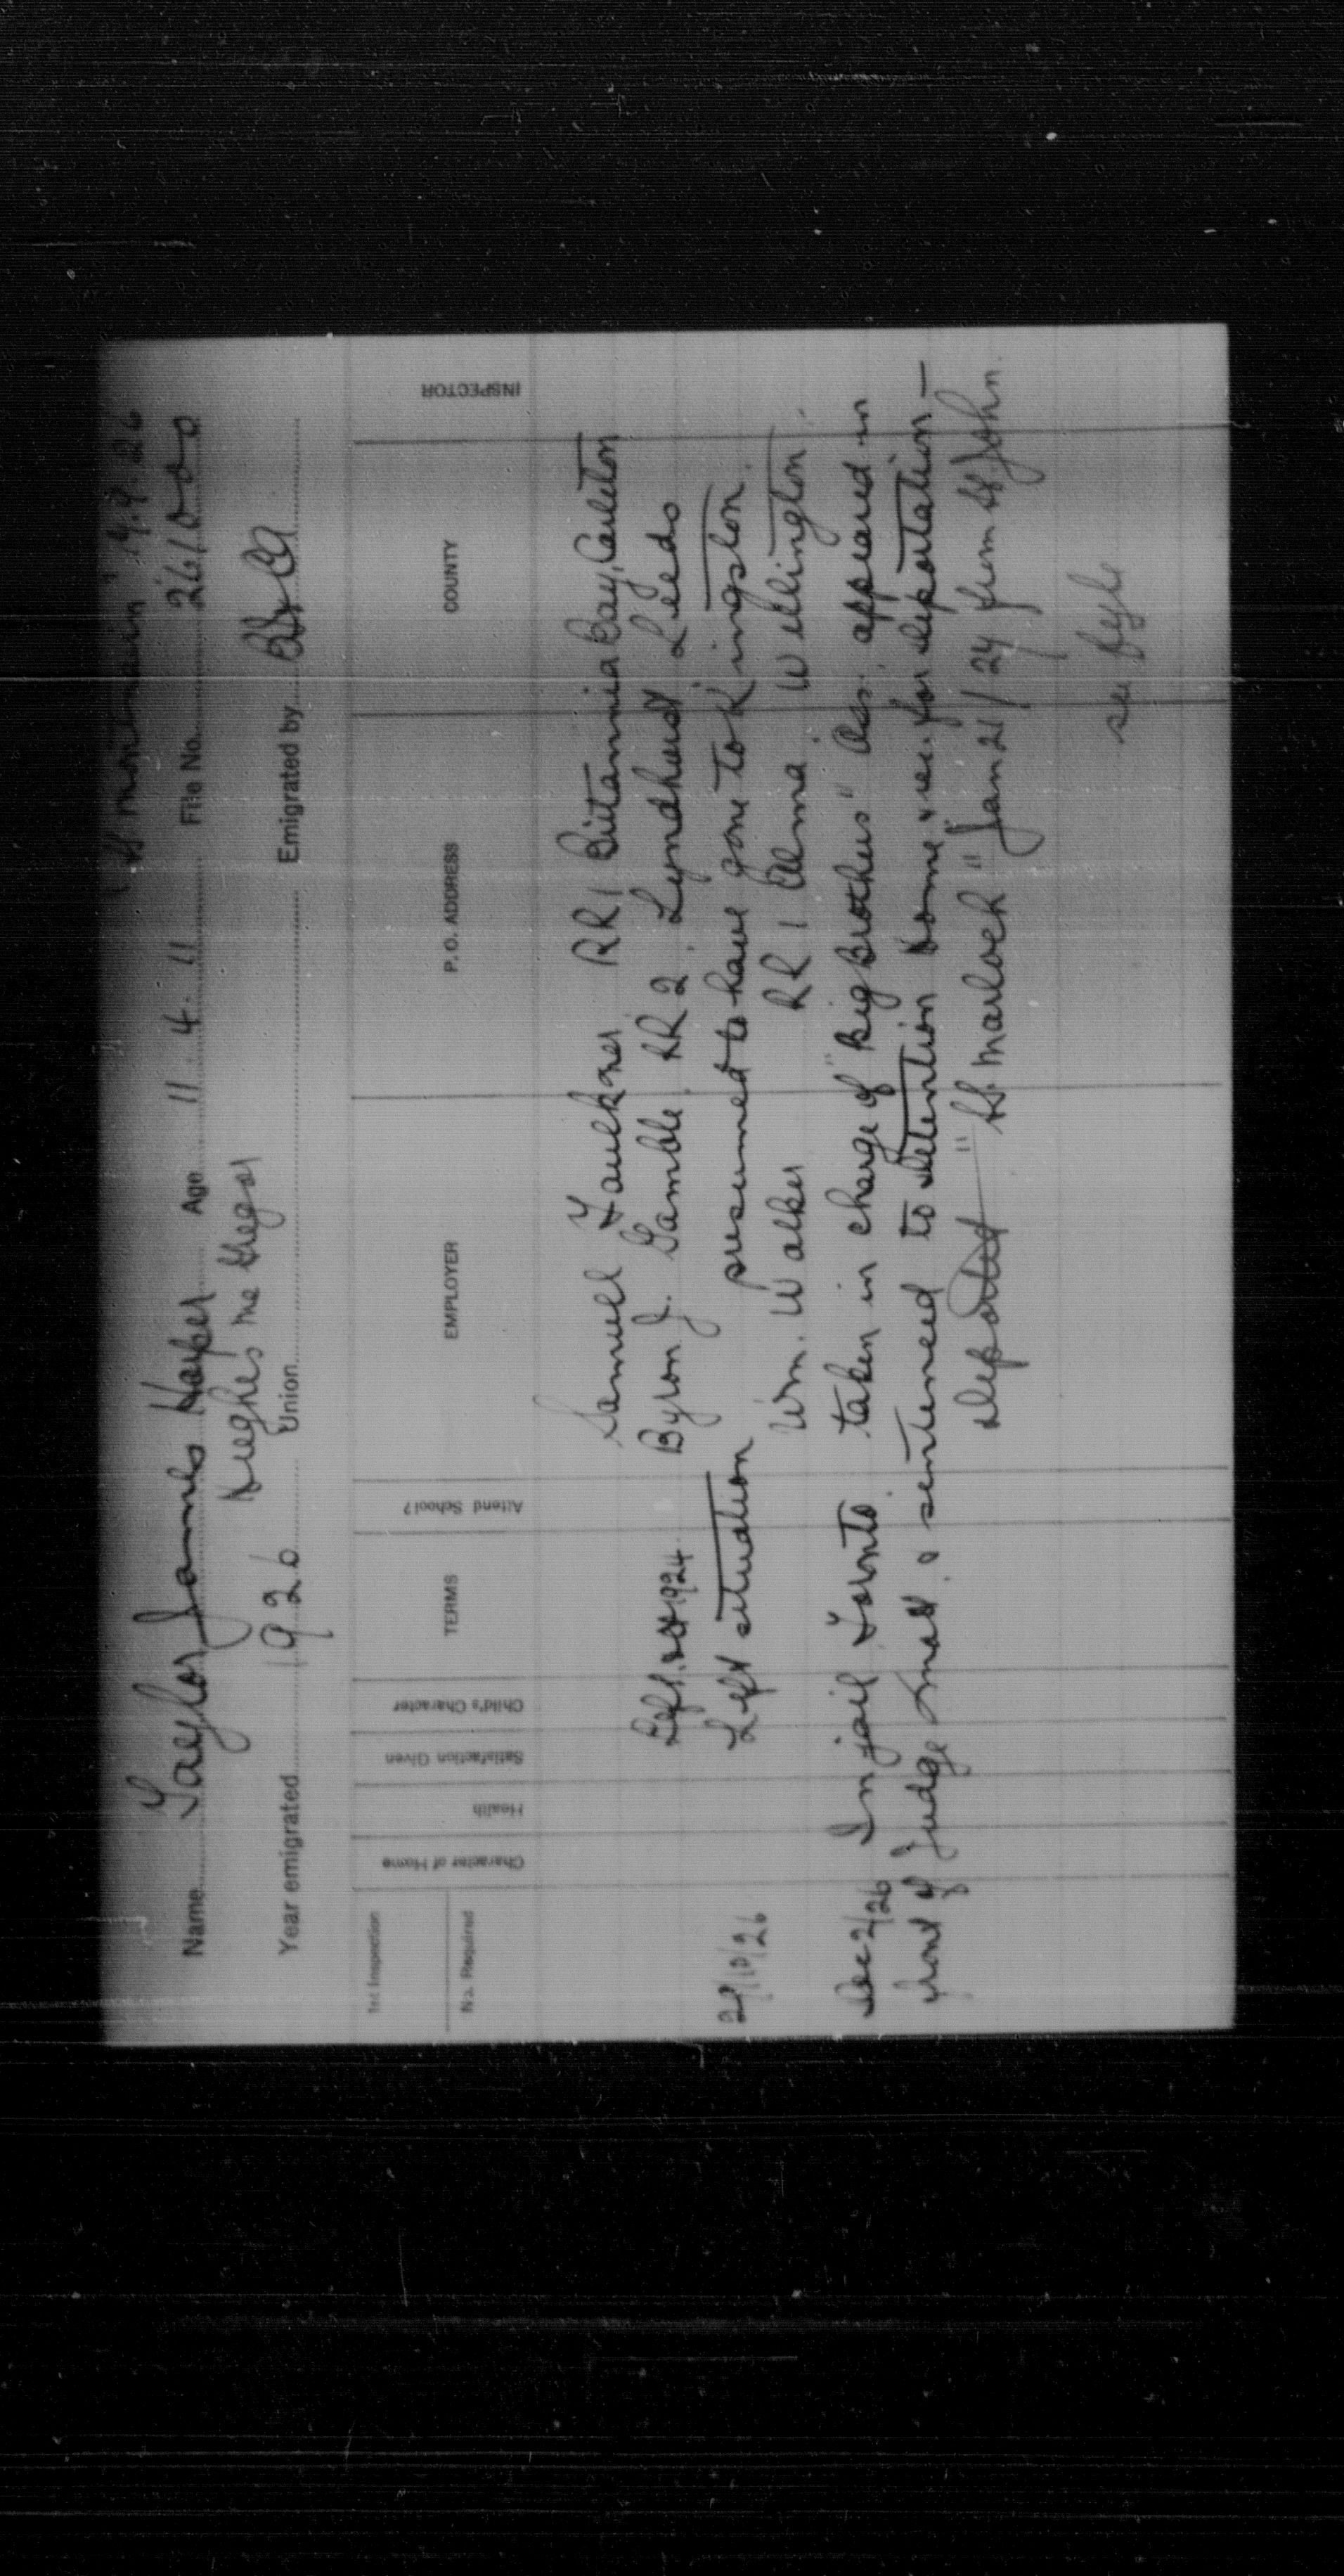 SS montnairn 14.9.26
Name Taylor James Harper Age 11. 4. 11 File No. 261000
Hughes Mc Gregor
Year emigrated 1926 Union Emigrated by
1st Inspection
No. Required
Character of Home Health Satisfaction Given Child's Character TERMS Attend School? EMPLOYER P. O. ADDRESS COUNTY INSPECTOR
Samuel Faulkner RR 1 Brittannia Bay, Carleton
Left 1924. Byron J. Gamble. RR 2. Lyndhurst Leeds
29/10/26 Left situation presumed to have gone to Kingston.
Wm. Walker RR 1 Alma. Wellington.
Dec 2/26 In jail Toronto. taken in charge of "Big Brothers" Ass. appeared in
front of Judge Mott. & sentenced to detention home & rec. for deportation —
deported — "SS. Marloch" Jan 21/27 from St John.
see fyle